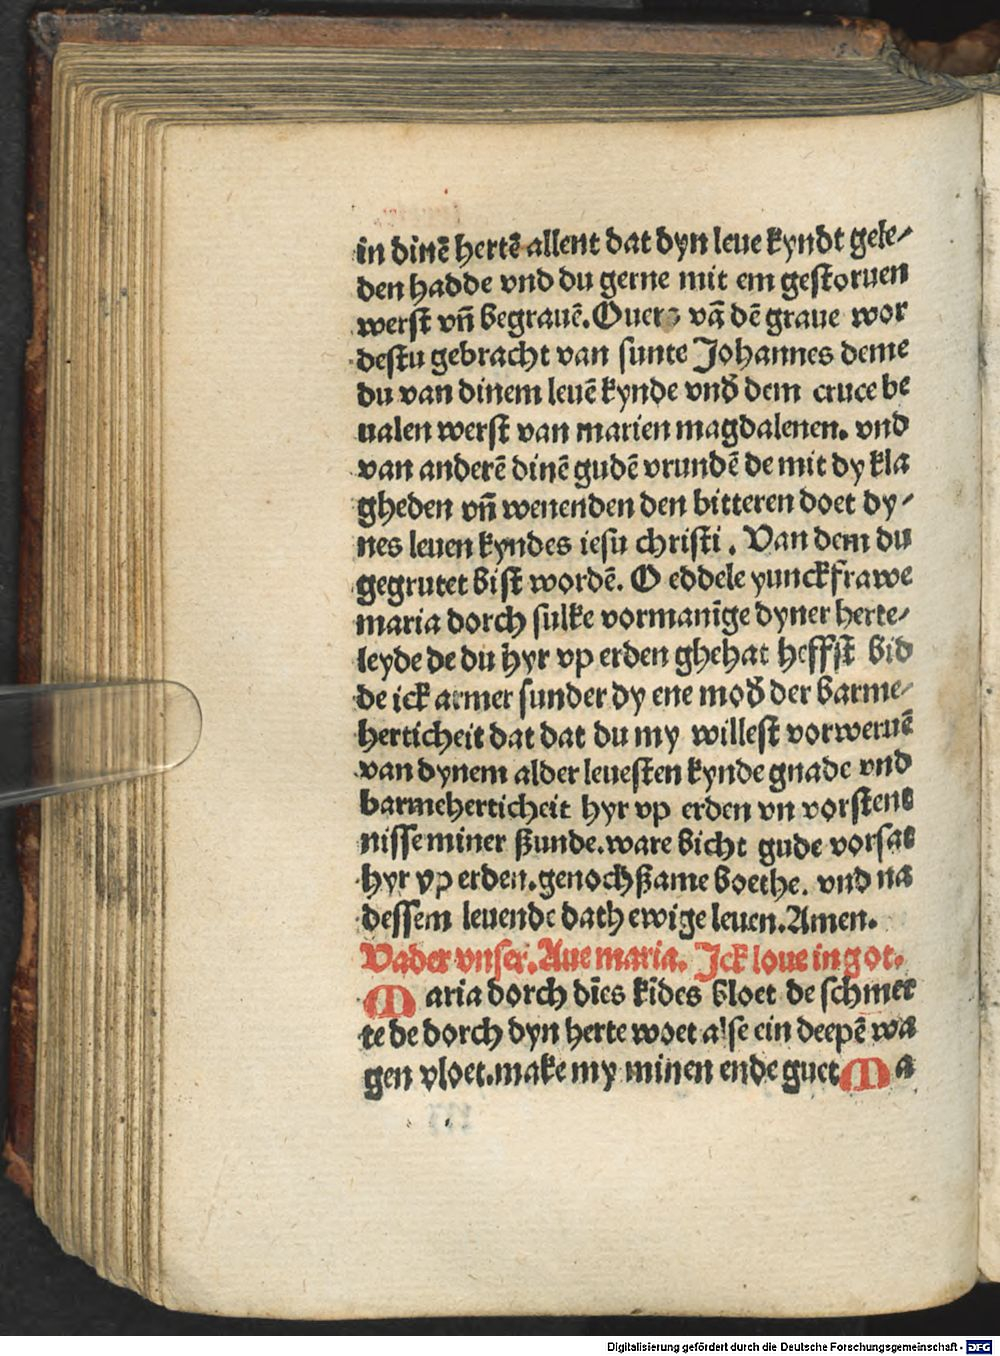 in dinē hertē allent dat dyn leue kyndt gele⸗
den hadde vnd du gerne mit em gestoruen
werst vn̄ begrauē. Ouerz vā dē graue wor
destu gebracht van sunte Johannes deme
du van dinem leuē kynde vnd̕ dem cruce be
ualen werst van marien magdalenen. vnd
van anderē dinē gudē vrundē de mit dy kla
gheden vn̄ wenenden den bitteren doet dy⸗
nes leuen kyndes iesu christi. Van dem du
gegrutet bist wordē. O eddele yunckfrawe
maria dorch sulke vormanīge dyner herte⸗
leyde de du hyr vp erden ghehat heffst bid
de ick armer sunder dy ene mod̕ der barme⸗
herticheit dat dat du my willest vorweruē
van dynem alder leuesten kynde gnade vnd
barmeherticheit hyr vp erden vn vorstene
nisse miner ßunde. ware bicht gude vorsat
hyr vp erden. genochßame boethe. vnd na
dessem leuende dath ewige leuen. Amen.
Vader vnser. Aue maria. Jck loue in got.
Maria dorch dīes kīdes bloet de schmer
te de dorch dyn herte woet alse ein deepē wa
gen vloet. make my minen ende guet Ma
Digitalisierung gefördert durch die Deutsche Forschungsgemeinschaft - DFG